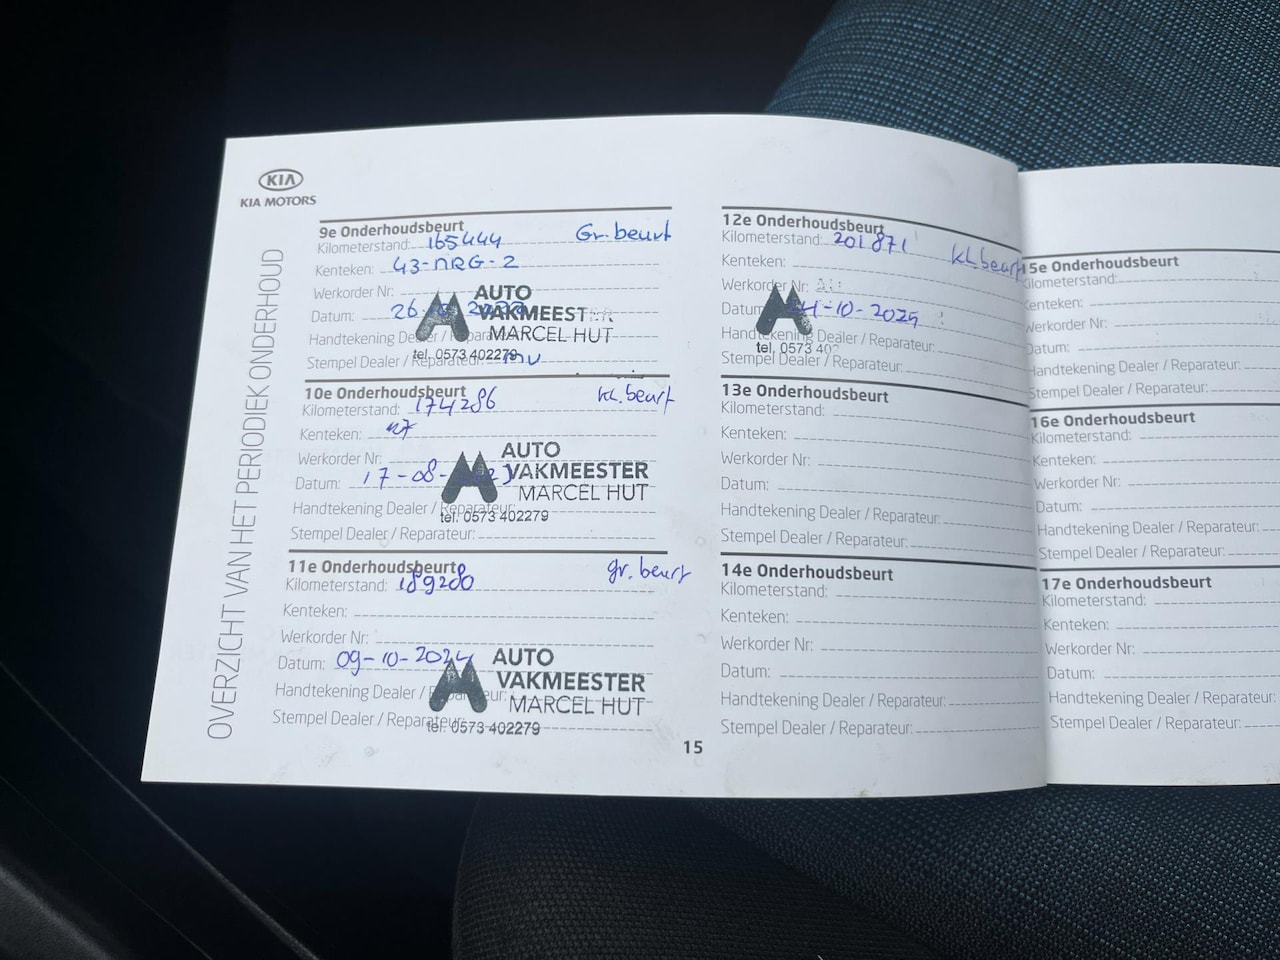 KIA
KIA MOTORS
OVERZICHT VAN HET PERIODIEK ONDERHOUD
9e Onderhoudsbeurt
Gr. beurt
Kilometerstand: 165444
Kenteken: 43-NRG-2
Werkorder Nr:
Datum: 26
Handtekening Dealer / Reparateur:
Stempel Dealer / Reparateur:
AUTO
VAKMEESTER
MARCEL HUT
tel. 0573 402279
10e Onderhoudsbeurt
kl. beurt
Kilometerstand: 174286
Kenteken:
Werkorder Nr:
Datum: 17-08-
Handtekening Dealer / Reparateur:
Stempel Dealer / Reparateur:
AUTO
VAKMEESTER
MARCEL HUT
tel. 0573 402279
11e Onderhoudsbeurt
gr. beurt
Kilometerstand: 189280
Kenteken:
Werkorder Nr:
Datum: 09-10-2024
Handtekening Dealer / Reparateur:
Stempel Dealer / Reparateur:
AUTO
VAKMEESTER
MARCEL HUT
tel. 0573 402279
15
12e Onderhoudsbeurt
Kilometerstand: 201871
kl. beurt
Kenteken:
Werkorder Nr:
Datum: -10-2025
Handtekening Dealer / Reparateur:
Stempel Dealer / Reparateur:
tel. 0573 40
13e Onderhoudsbeurt
Kilometerstand:
Kenteken:
Werkorder Nr:
Datum:
Handtekening Dealer / Reparateur:
Stempel Dealer / Reparateur:
14e Onderhoudsbeurt
Kilometerstand:
Kenteken:
Werkorder Nr:
Datum:
Handtekening Dealer / Reparateur:
Stempel Dealer / Reparateur:
15e Onderhoudsbeurt
Kilometerstand:
Kenteken:
Werkorder Nr:
Datum:
Handtekening Dealer / Reparateur:
Stempel Dealer / Reparateur:
16e Onderhoudsbeurt
Kilometerstand:
Kenteken:
Werkorder Nr:
Datum:
Handtekening Dealer / Reparateur:
Stempel Dealer / Reparateur:
17e Onderhoudsbeurt
Kilometerstand:
Kenteken:
Werkorder Nr:
Datum:
Handtekening Dealer / Reparateur:
Stempel Dealer / Reparateur: